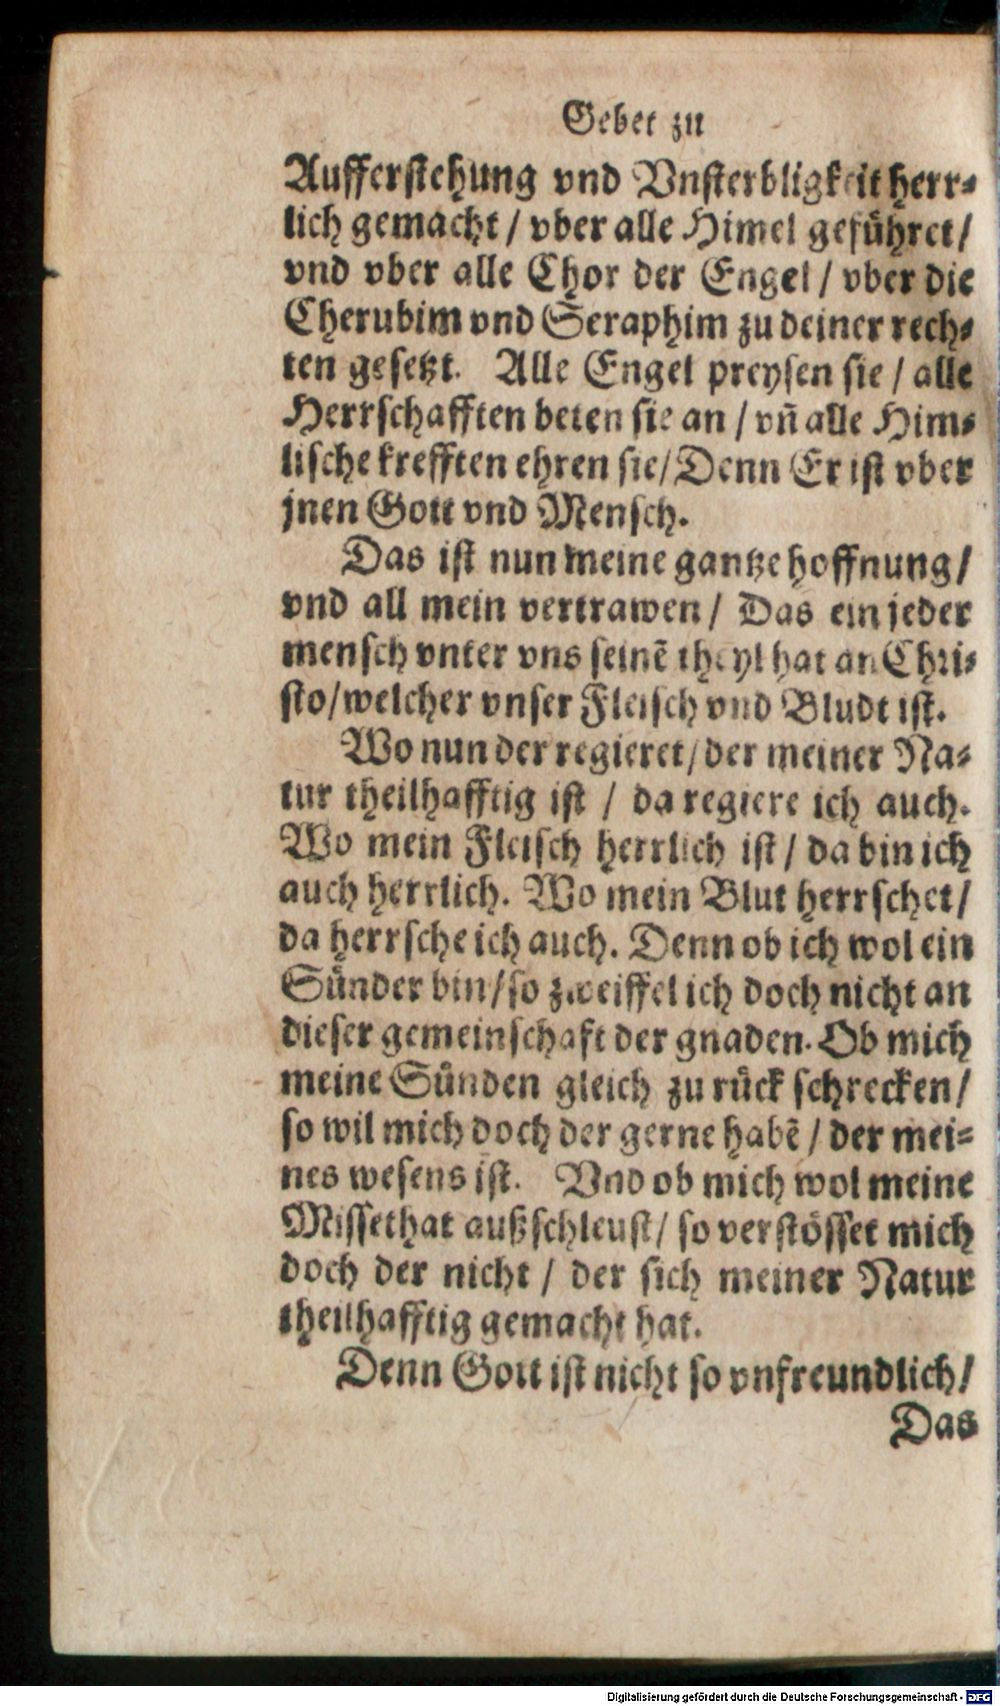 Gebet zu
Aufferstehung vnd Vnsterbligkeit herr-
lich gemacht / vber alle Himel geführet /
vnd vber alle Chor der Engel / vber die
Cherubim vnd Seraphim zu deiner rech-
ten gesetzt. Alle Engel preysen sie / alle
Herrschafften beten sie an / vn̄ alle Him-
lische krefften ehren sie / Denn Er ist vber
jnen Gott vnd Mensch.
Das ist nun meine gantze hoffnung /
vnd all mein vertrawen / Das ein jeder
mensch vnter vns seinē theyl hat an Chri-
sto / welcher vnser Fleisch vnd Bludt ist.
Wo nun der regieret / der meiner Na-
tur theilhafftig ist / da regiere ich auch.
Wo mein Fleisch herrlich ist / da bin ich
auch herrlich. Wo mein Blut herrschet /
da herrsche ich auch. Denn ob ich wol ein
Sünder bin / so zweiffel ich doch nicht an
dieser gemeinschaft der gnaden. Ob mich
meine Sünden gleich zu rück schrecken /
so wil mich doch der gerne habē / der mei-
nes wesens ist. Vnd ob mich wol meine
Missethat außschleust / so verstösset mich
doch der nicht / der sich meiner Natur
theilhafftig gemacht hat.
Denn Gott ist nicht so vnfreundlich /
Das
Digitalisierung gefördert durch die Deutsche Forschungsgemeinschaft - DFG